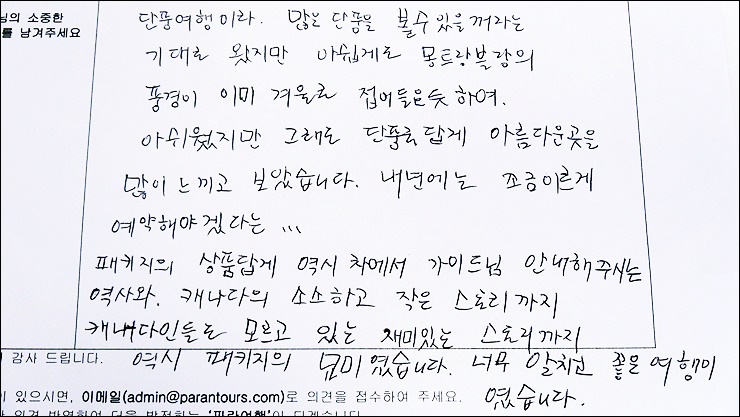 님의 소중한
를 남겨주세요
단풍여행이라. 많은 단풍을 볼수 있을꺼라는
기대로 왔지만 아쉽게도 몽트랑블랑의
풍경이 이미 겨울로 접어들은듯 하여.
아쉬웠지만 그래도 단풍국답게 아름다운곳을
많이 느끼고 보았습니다. 내년에는 조금이르게
예약해야겠다는 ...
패키지의 상품답게 역시 차에서 가이드님 안내해주시는
역사와. 캐나다의 소소하고 작은 스토리까지
캐내다인들도 모르고 있는 재미있는 스토리까지
감사 드립니다. 역시 패키지의 묘미였습니다. 너무 알차고 좋은여행이
이 있으시면, 이메일(admin@parantours.com)로 의견을 접수하여 주세요. 였습니다.